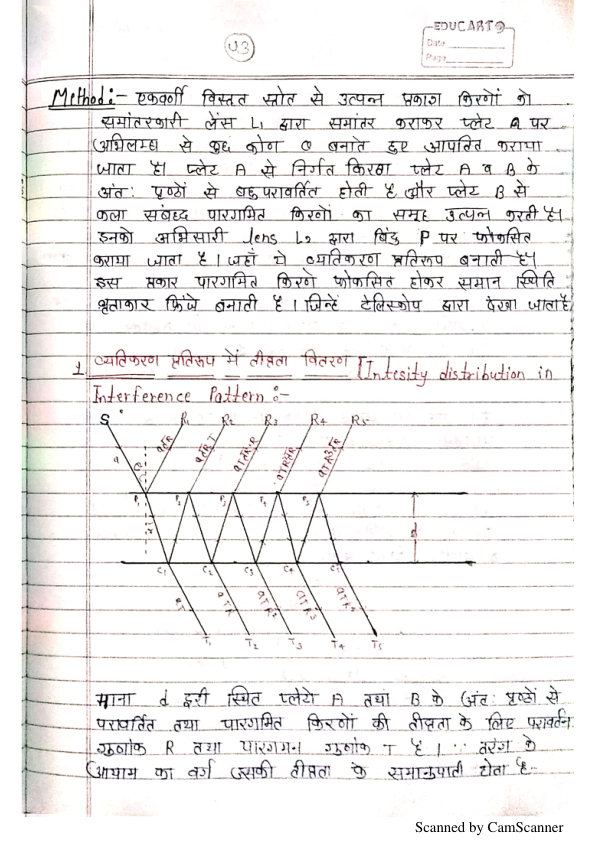 EDUCART
Date
Page
43
Method:- एकवर्णी विस्तृत स्रोत से उत्पन्न प्रकाश किरणों को
समांतरकारी लेंस L₁ द्वारा समांतर कराकर प्लेट A पर
अभिलम्ब से कुछ कोण θ बनाते हुए आपतित कराया
जाता है। प्लेट A से निर्गत किरण प्लेट A व B के
अंत: पृष्ठों से बहुपरावर्तित होती है और प्लेट B से
कला संबद्ध पारगमित किरणों का समूह उत्पन्न करती है।
इनको अभिसारी lens L₂ द्वारा बिंदु P पर फोकसित
कराया जाता है। जहाँ ये व्यतिकरण प्रतिरूप बनाती है।
इस प्रकार पारगमित किरणे फोकसित होकर समान स्थिति
वृताकार फ्रिंजे बनाती है। जिन्हें टेलिस्कोप द्वारा देखा जाता है
1 व्यतिकरण प्रतिरूप में तीव्रता वितरण [Intesity distribution in
Interference Pattern :-
S R₁ R₂ R₃ R₄ R₅
a θ
P₁ P₂ P₃ P₄ P₅
d
C₁ C₂ C₃ C₄ C₅
aT aTR aTR² aTR³ aTR⁴
T₁ T₂ T₃ T₄ T₅
माना d दूरी स्थित प्लेटो A तथा B के अंत: पृष्ठों से
परावर्तित तथा पारगमित किरणों की तीव्रता के लिए परावर्तन
गुणांक R तथा पारगमन गुणांक T है। ∵ तरंग के
आयाम का वर्ग उसकी तीव्रता के समानुपाती होता है
Scanned by CamScanner